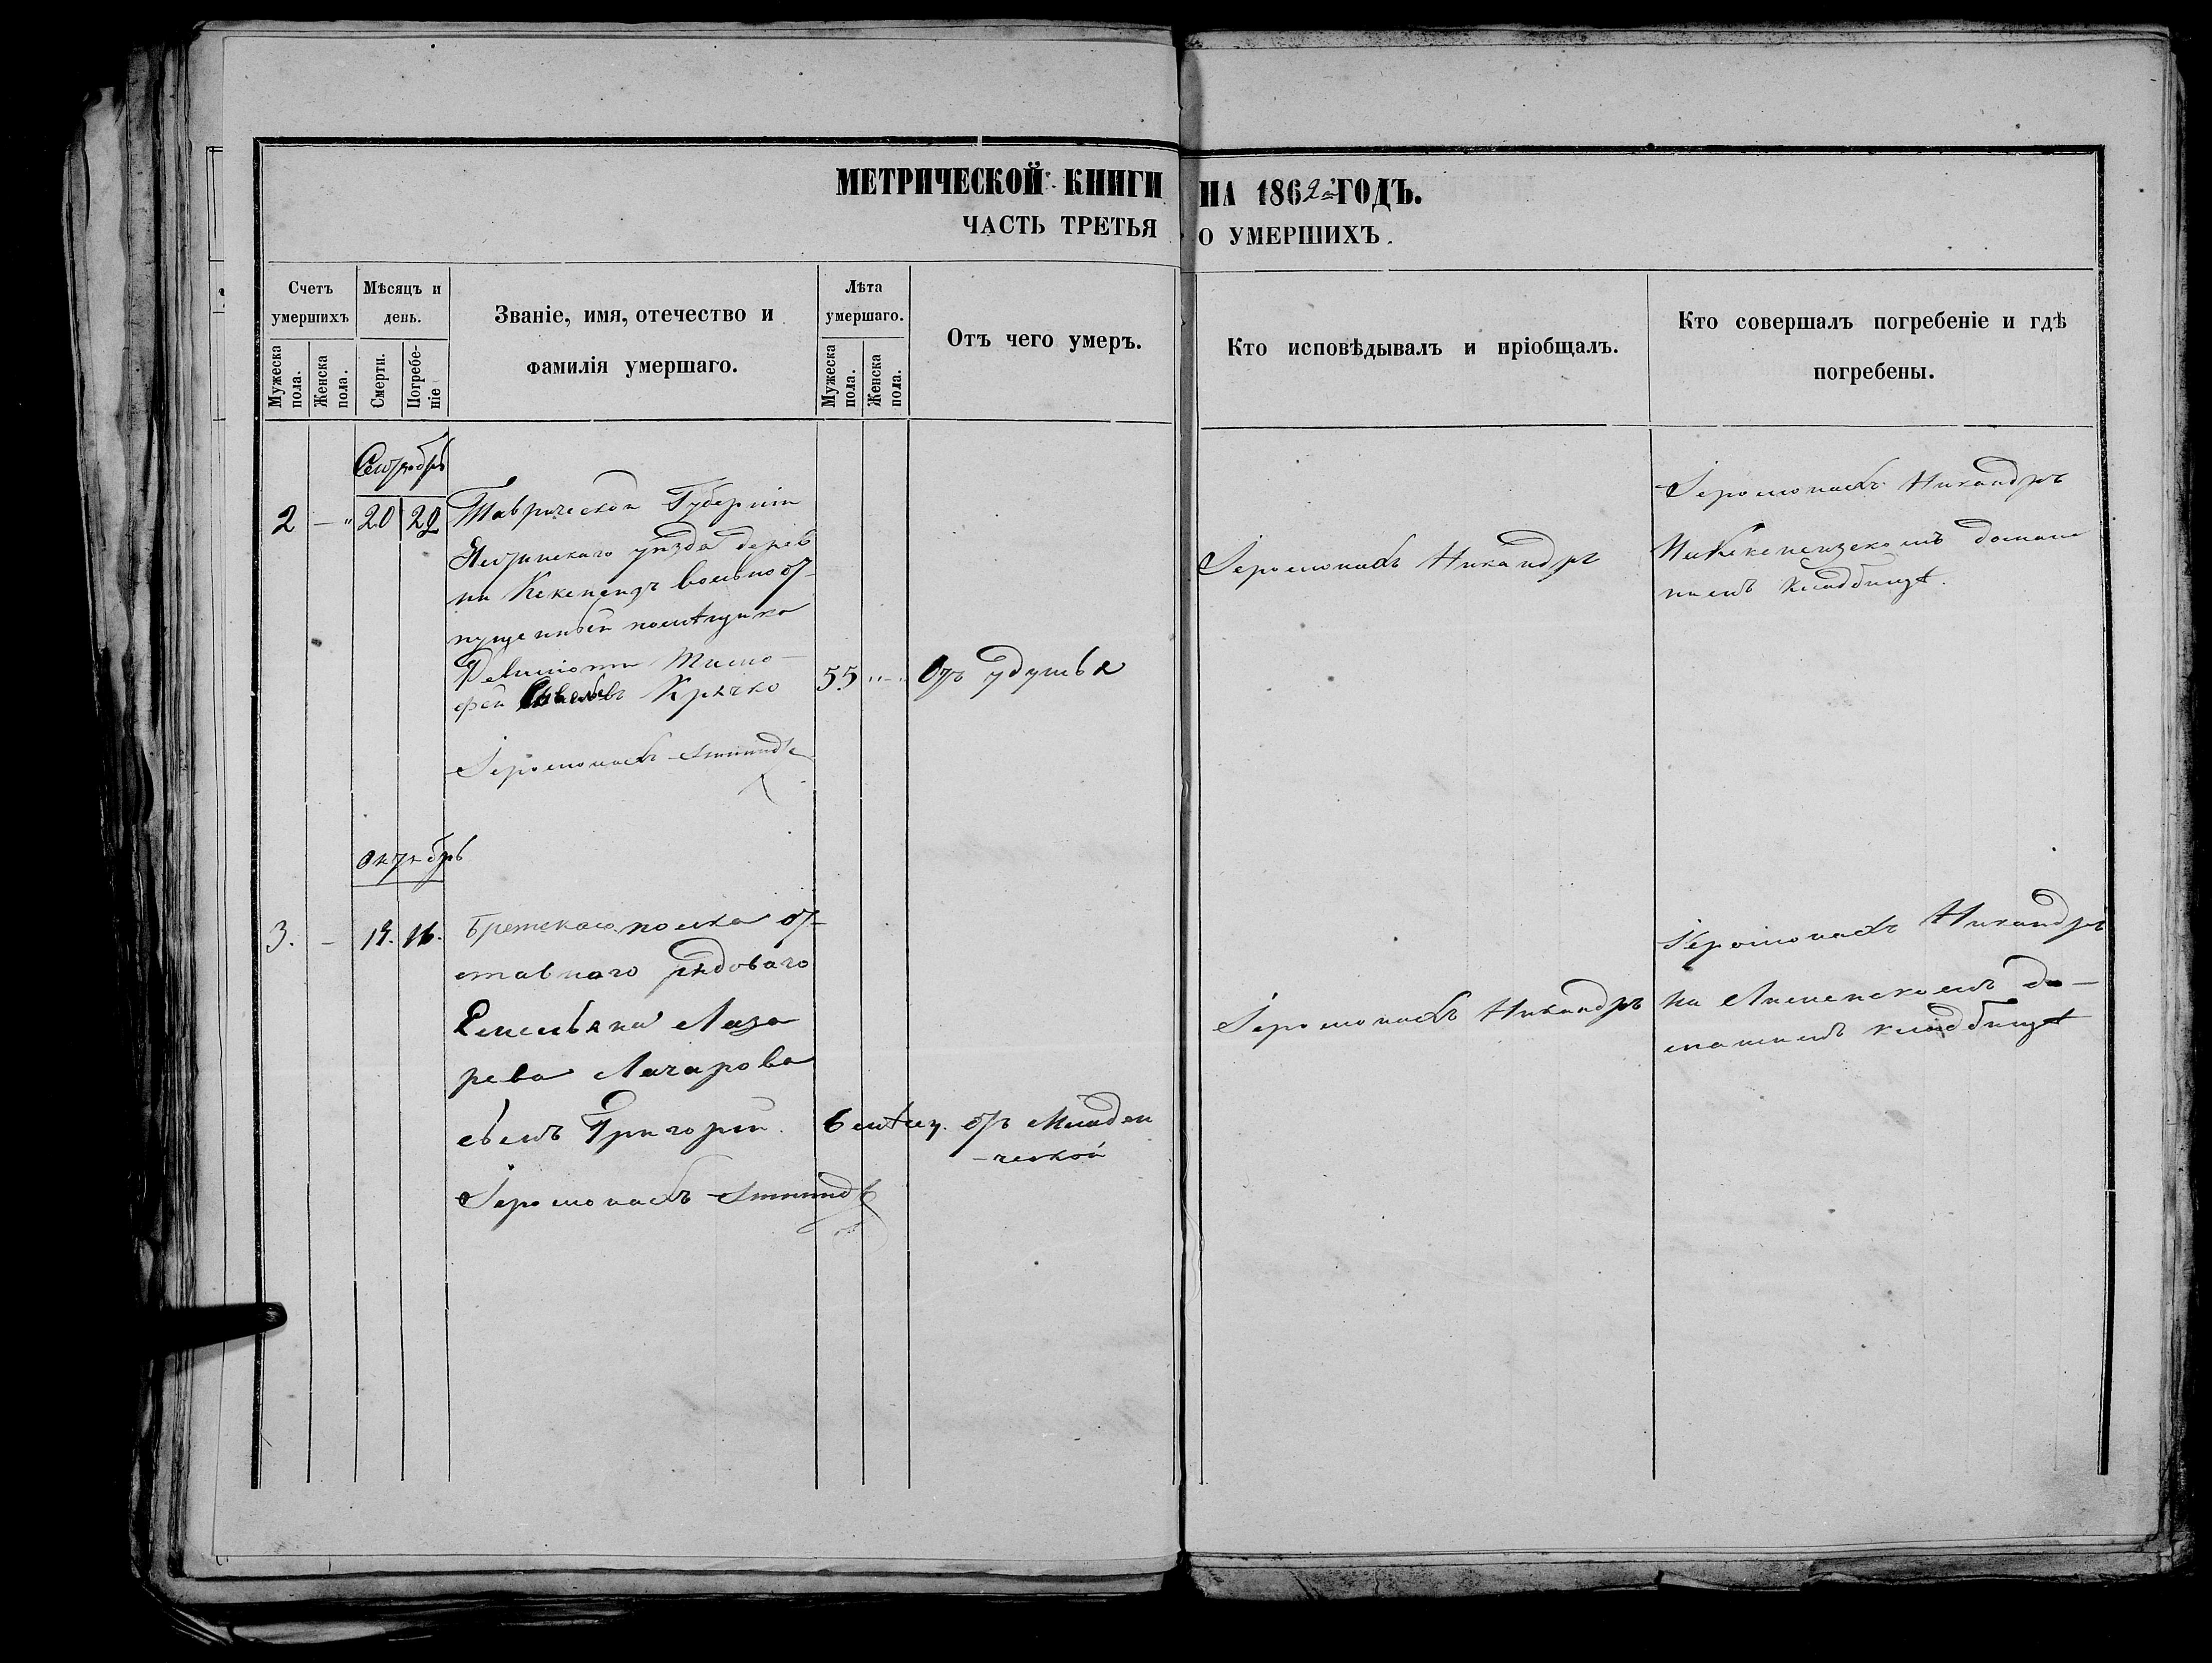 МЕТРИЧЕСКОЙ КНИГИ НА 1862й ГОДЪ.
ЧАСТЬ ТРЕТЬЯ О УМЕРШИХЪ.
Счетъ умершихъ
Мужеска пола.
Женска пола.
Мѣсяцъ и день.
Смерти.
Погребеніе
Званіе, имя, отечество и
фамилія умершаго.
Лѣта умершаго.
Мужеска пола.
Женска пола.
Отъ чего умеръ.
Кто исповѣдывалъ и пріобщалъ.
Кто совершалъ погребеніе и гдѣ
погребены.
Сентябрь
2 — " 20 22
Таврической Губерніи
Ялтинскаго уѣзда дерев
ни Кекенеизъ вольноот-
пущенный помѣщика
Ревиліоти Тимо-
фей Крячко
55 "-" Отъ удушья
Іеромонахъ Никандръ
Іеромонахъ Никандръ
На Кекенеизскомъ домаш
немъ кладбищѣ.
Іеромонахъ
Октябрь
3. — 14. 16.
Брестскаго полка от-
ставнаго рядоваго
Емельяна Лаза
рева Лачарова
сынъ Григорій. 6 мѣсяц. отъ Младен
-ческой
Іеромонахъ Никандръ
Іеромонахъ Никандръ
на Лименскомъ до-
машнемъ кладбищѣ
Іеромонахъ